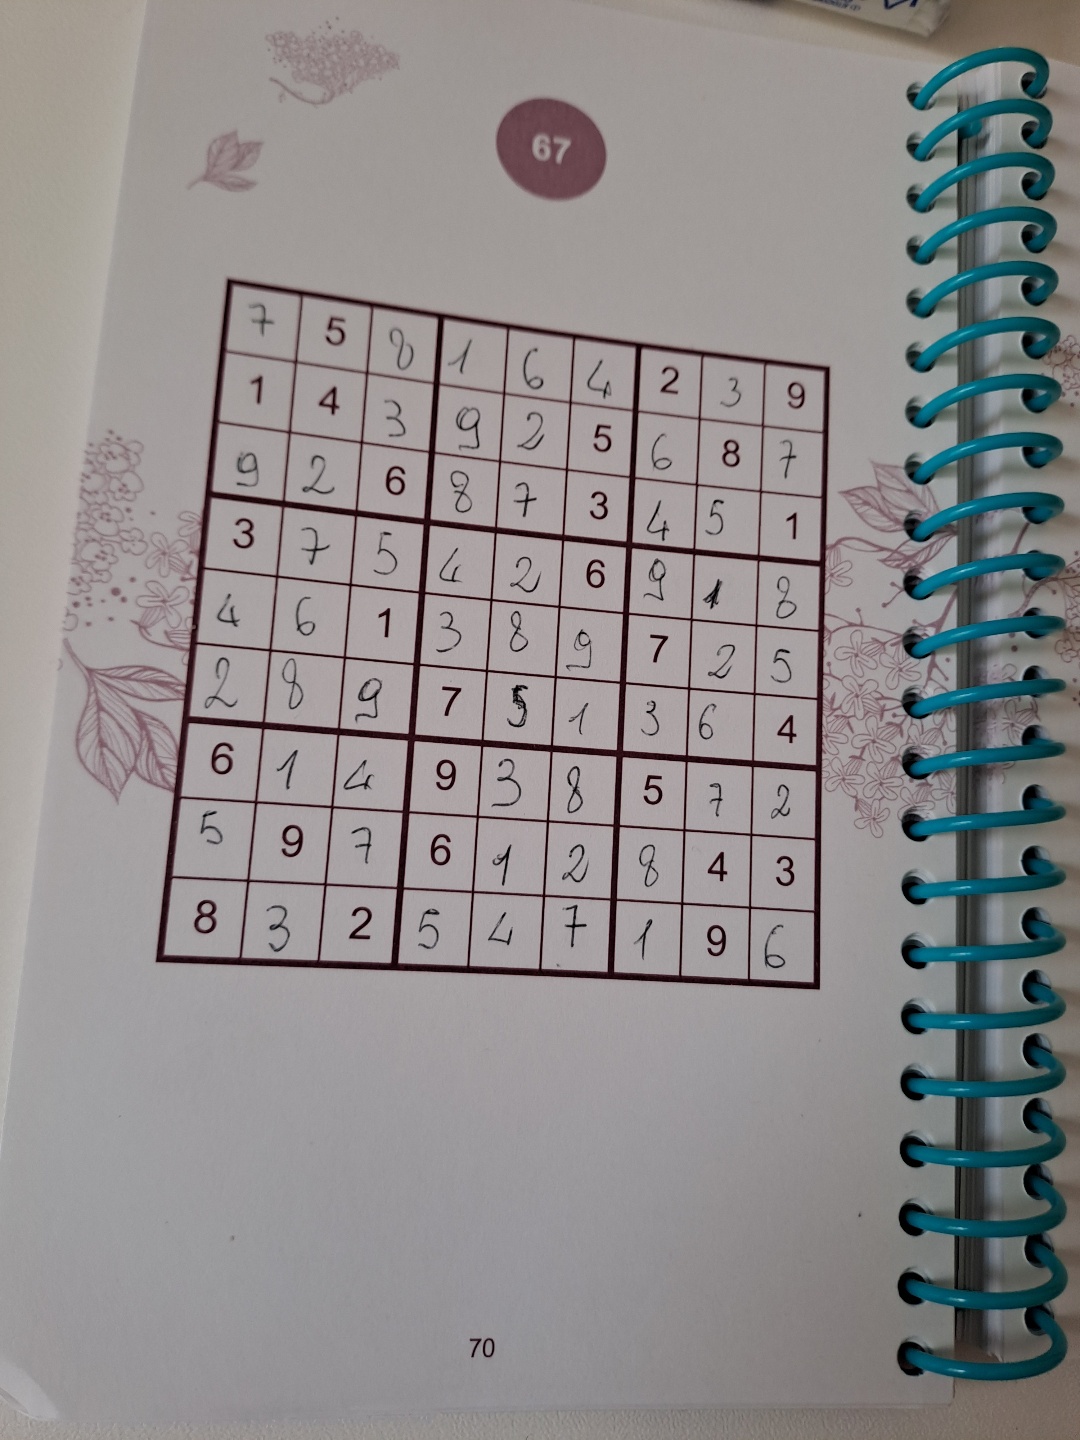 67
7 5 8 1 6 4 2 3 9
1 4 3 9 2 5 6 8 7
9 2 6 8 7 3 4 5 1
3 7 5 4 2 6 9 1 8
4 6 1 3 8 9 7 2 5
2 8 9 7 5 1 3 6 4
6 1 4 9 3 8 5 7 2
5 9 7 6 1 2 8 4 3
8 3 2 5 4 7 1 9 6
70